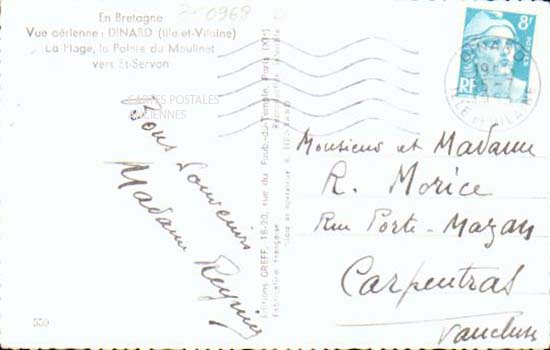 En Bretagne
Vue aérienne : DINARD (Ille-et-Vilaine)
La Plage, la Pointe du Moulinet
vers St-Servan
CARTES POSTALES
ANCIENNES
Bons Souvenirs
Madame
559
Editions GREFF, 18-20, rue du Faub.-du-Temple, Paris (XIe)
Fabrication française
Reproduction interdite
8F
RF
DINARD
ILLE-ET-VILAINE
Monsieur et Madame
R. Morice
Rue Porte-Mazan
Carpentras
Vaucluse